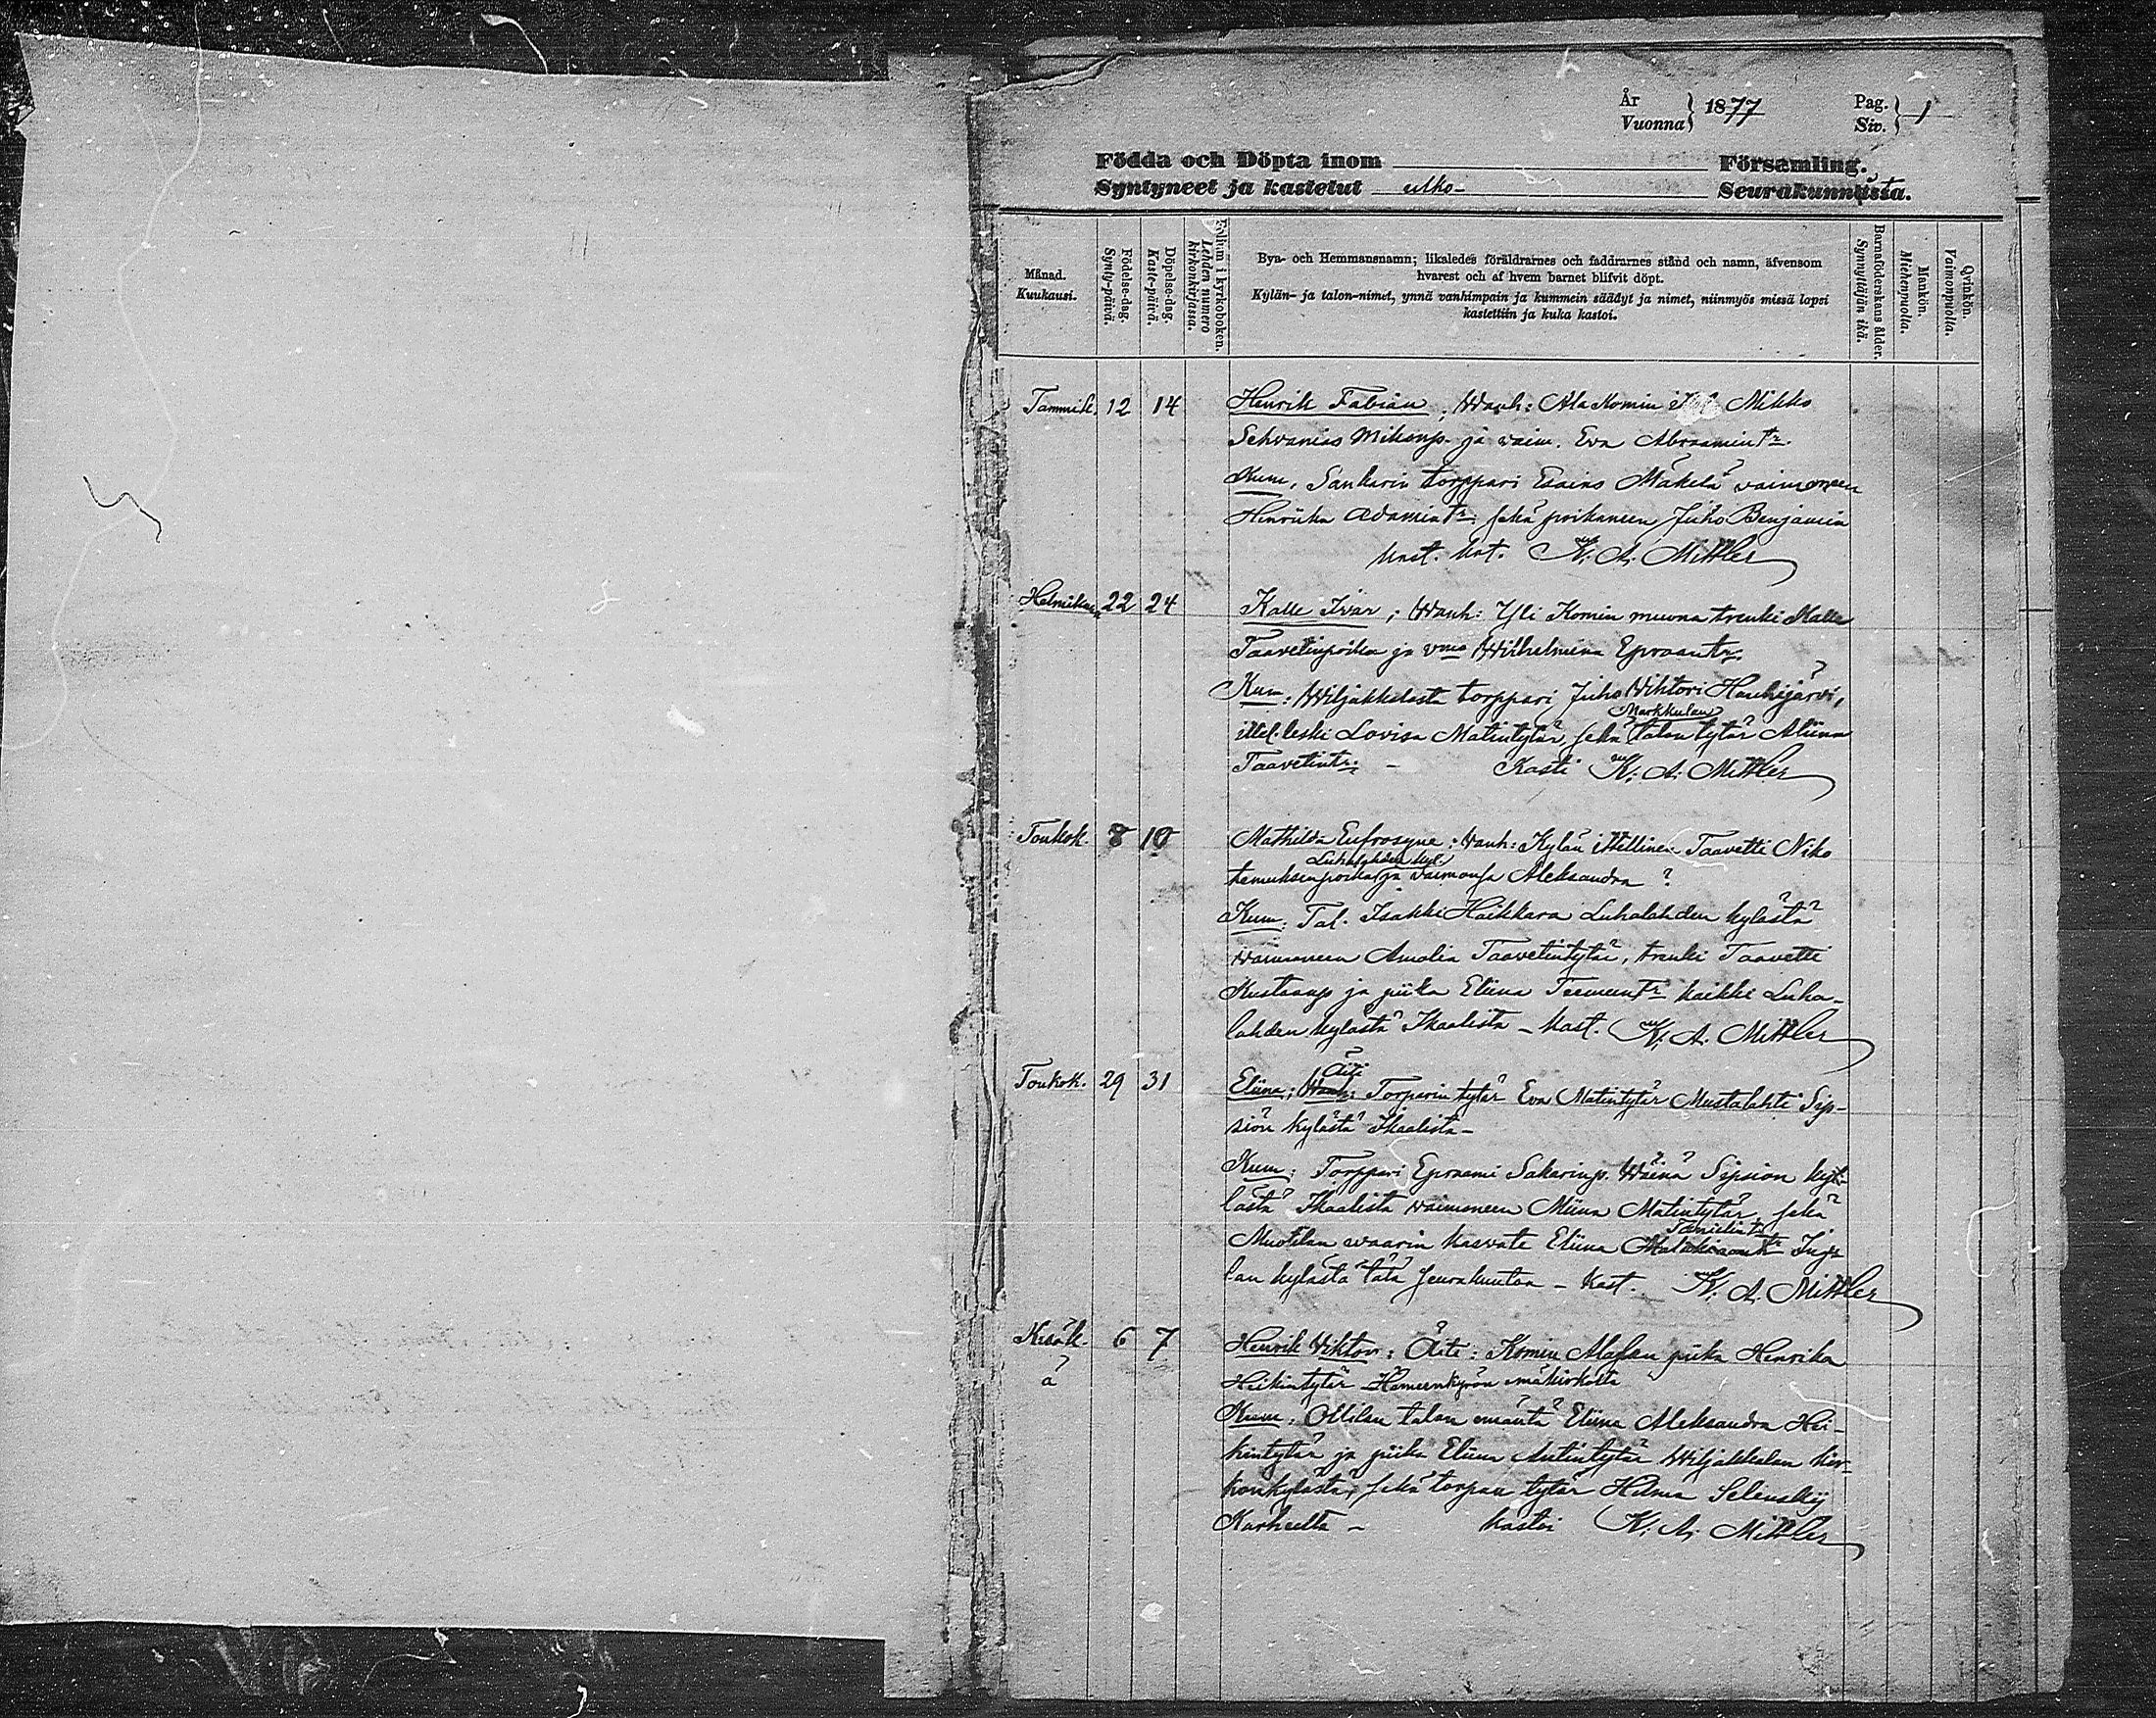 År
Vuonna } 1877 Pag.
Siv. } 1
Födda och Döpta inom Församling.
Syntyneet ja kastetut ulko- Seurakunnista.
Månad.
Kuukausi.
Födelse-dag.
Synty-päivä.
Döpelse-dag.
Kaste-päivä.
Folium i kyrkoboken.
Lehden numero
kirkonkirjassa.
Bya- och Hemmansnamn; likaledes föräldrarnes och faddrarnes stånd och namn, äfvensom
hvarest och af hvem barnet blifvit döpt.
Kylän- ja talon-nimet, ynnä vanhimpain ja kummein säädyt ja nimet, niinmyös missä lapsi
kastettiin ja kuka kastoi.
Barnaföderskans ålder.
Synnyttäjän ikä.
Mankön.
Miehenpuolia.
Qvinkön.
Vaimonpuolia.
Tammik. 12 14 Henrik Fabian. Wanh: Ala Komin Mikko
Mikonp. ja vaim. Eva Abraamintr.
Kum. Sankarin torppari Esaias Mäkelä vaimoneen
Henriika Adamintr. sekä poikaneen Juho Benjamin
kast. K. A. Mittler
Helmikuu 22 24 Kalle Ivar; Wanh: Yli Komin muona trenki Kalle
Taavetinpoika ja vmo Wilhelmina Epraantr.
Kum: Wiljakkalasta torppari Juho Wihtori Haukijärvi,
Markkulan
ittel. leski Lovisa Matintytär, sekä talon tytär Aliina
Taavetintr. – Kasti K. A. Mittler
Toukok. 8 10 Mathilda Eufrosyne: Wanh: Kylän ittellinen Taavetti Niko
Luhalahden kyl.
temuksenpoika ja vaimonsa Aleksandra ?
Kum: Tal. Isakki Haikkara Luhalahden kylästä
waimoneen Amalia Taavetintytär, trenki Taavetti
Kustaanp ja piika Eliina kaikki Luha-
lahden kylästä Ikaalista – Kast. K. A. Mittler
Äiti
Toukok. 29 31 Eliina; Wanh: Torparin tytär Eva Matintytär Mustalahti Sip-
siön kylästä Ikaalista –
Kum: Torppari Epraami Sakarinp. Wäinä Sipsion kyl-
lästä Ikaalista vaimoneen Miina Matintytär, sekä
Taneilintr
Muotilan waarin kasvate Eliina Inge
lan kylästä tätä seurakuntaa – Kast. K. A. Mittler
Kesäk. 6 7 Henrik Viktor: Äiti: Komin Alasen piika Henrika
ä
Heikintytär Hämeenkyrön emäkirkolta
Kum: Ollilan talon emäntä Eliina Aleksandra Hei-
kintytär ja piika Eliina Antintytär Wiljakkalan kir-
konkylästä, sekä torpan tytär Hilma Selinskij
Karheelta – kastoi K. A. Mittler